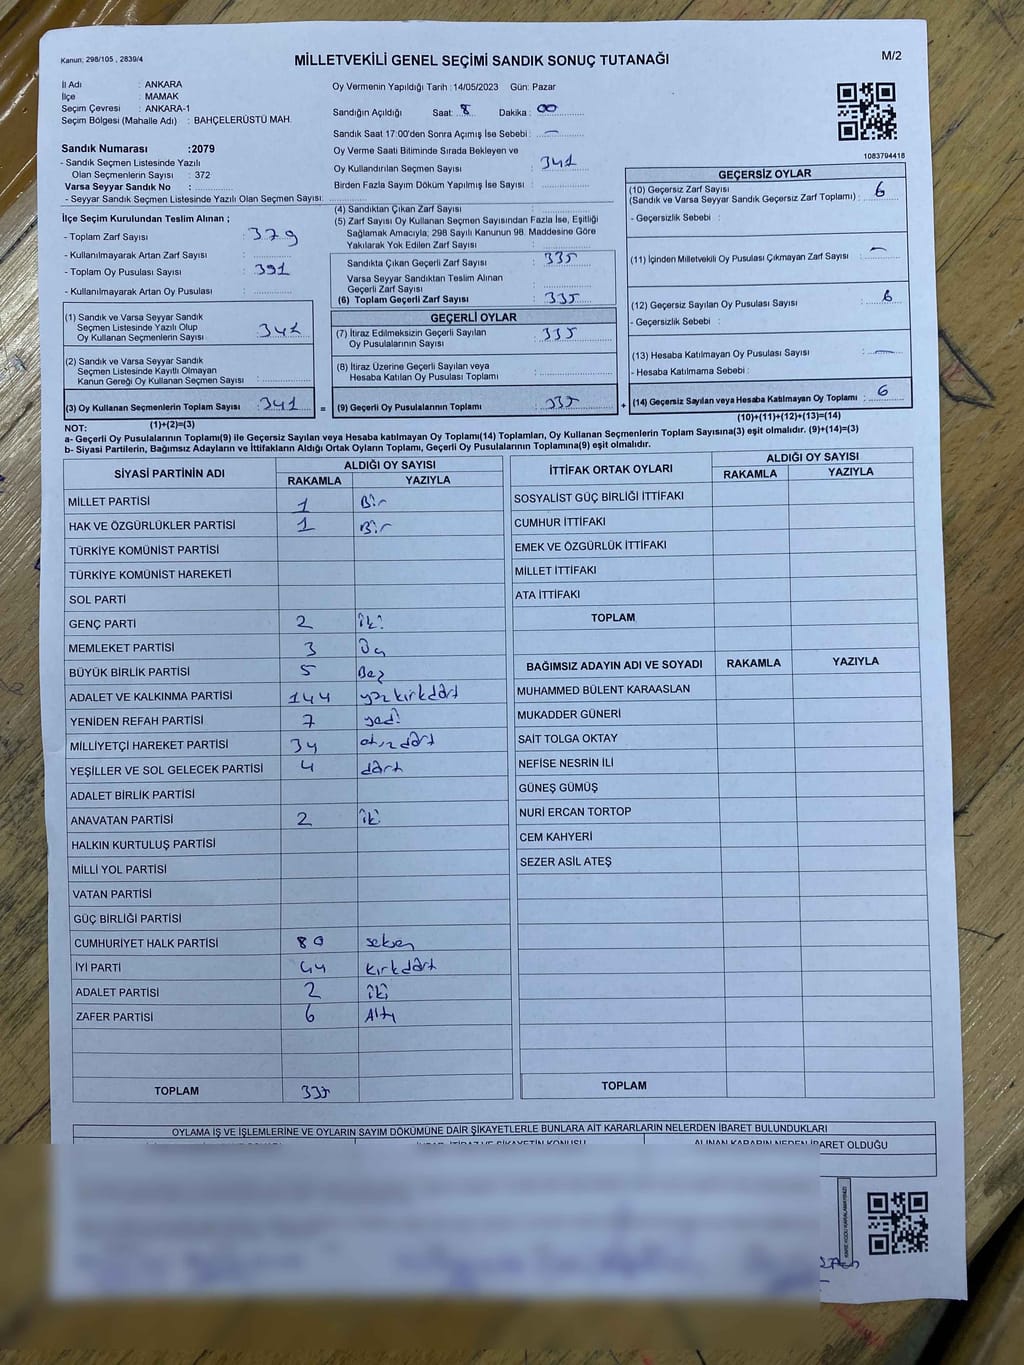 Kanun; 298/105 , 2839/4
MİLLETVEKİLİ GENEL SEÇİMİ SANDIK SONUÇ TUTANAĞI
M/2
İl Adı : ANKARA
İlçe : MAMAK
Seçim Çevresi : ANKARA-1
Seçim Bölgesi (Mahalle Adı) : BAHÇELERÜSTÜ MAH.
Sandık Numarası :2079
- Sandık Seçmen Listesinde Yazılı
Olan Seçmenlerin Sayısı : 372
Varsa Seyyar Sandık No :
- Seyyar Sandık Seçmen Listesinde Yazılı Olan Seçmen Sayısı:
İlçe Seçim Kurulundan Teslim Alınan ;
- Toplam Zarf Sayısı : 379
- Kullanılmayarak Artan Zarf Sayısı :
- Toplam Oy Pusulası Sayısı : 391
- Kullanılmayarak Artan Oy Pusulası :
(1) Sandık ve Varsa Seyyar Sandık
Seçmen Listesinde Yazılı Olup
Oy Kullanan Seçmenlerin Sayısı : 341
(2) Sandık ve Varsa Seyyar Sandık
Seçmen Listesinde Kayıtlı Olmayan
Kanun Gereği Oy Kullanan Seçmen Sayısı :
(3) Oy Kullanan Seçmenlerin Toplam Sayısı : 341
(1)+(2)=(3)
Oy Vermenin Yapıldığı Tarih : 14/05/2023 Gün: Pazar
Sandığın Açıldığı Saat: 8 Dakika : 00
Sandık Saat 17:00'den Sonra Açılmış İse Sebebi : —
Oy Verme Saati Bitiminde Sırada Bekleyen ve
Oy Kullandırılan Seçmen Sayısı : 341
Birden Fazla Sayım Döküm Yapılmış İse Sayısı :
(4) Sandıktan Çıkan Zarf Sayısı :
(5) Zarf Sayısı Oy Kullanan Seçmen Sayısından Fazla İse, Eşitliği
Sağlamak Amacıyla; 298 Sayılı Kanunun 98. Maddesine Göre
Yakılarak Yok Edilen Zarf Sayısı :
Sandıkta Çıkan Geçerli Zarf Sayısı : 335
Varsa Seyyar Sandıktan Teslim Alınan
Geçerli Zarf Sayısı :
(6) Toplam Geçerli Zarf Sayısı : 335
GEÇERLİ OYLAR
(7) İtiraz Edilmeksizin Geçerli Sayılan
Oy Pusulalarının Sayısı : 335
(8) İtiraz Üzerine Geçerli Sayılan veya
Hesaba Katılan Oy Pusulası Toplamı :
= (9) Geçerli Oy Pusulalarının Toplamı : 335 +
1083794418
GEÇERSİZ OYLAR
(10) Geçersiz Zarf Sayısı
(Sandık ve Varsa Seyyar Sandık Geçersiz Zarf Toplamı) : 6
- Geçersizlik Sebebi :
(11) İçinden Milletvekili Oy Pusulası Çıkmayan Zarf Sayısı : —
(12) Geçersiz Sayılan Oy Pusulası Sayısı : 6
- Geçersizlik Sebebi :
(13) Hesaba Katılmayan Oy Pusulası Sayısı : —
- Hesaba Katılmama Sebebi :
(14) Geçersiz Sayılan veya Hesaba Katılmayan Oy Toplamı : 6
(10)+(11)+(12)+(13)=(14)
NOT:
a- Geçerli Oy Pusulalarının Toplamı(9) ile Geçersiz Sayılan veya Hesaba katılmayan Oy Toplamı(14) Toplamları, Oy Kullanan Seçmenlerin Toplam Sayısına(3) eşit olmalıdır. (9)+(14)=(3)
b- Siyasi Partilerin, Bağımsız Adayların ve İttifakların Aldığı Ortak Oyların Toplamı, Geçerli Oy Pusulalarının Toplamına(9) eşit olmalıdır.
SİYASİ PARTİNİN ADI ALDIĞI OY SAYISI
RAKAMLA YAZIYLA
MİLLET PARTİSİ 1 Bir
HAK VE ÖZGÜRLÜKLER PARTİSİ 1 Bir
TÜRKİYE KOMÜNİST PARTİSİ
TÜRKİYE KOMÜNİST HAREKETİ
SOL PARTİ
GENÇ PARTİ 2 iki
MEMLEKET PARTİSİ 3 Üç
BÜYÜK BİRLİK PARTİSİ 5 Beş
ADALET VE KALKINMA PARTİSİ 144 yüzkırkdört
YENİDEN REFAH PARTİSİ 7 yedi
MİLLİYETÇİ HAREKET PARTİSİ 34 otuzdört
YEŞİLLER VE SOL GELECEK PARTİSİ 4 dört
ADALET BİRLİK PARTİSİ
ANAVATAN PARTİSİ 2 iki
HALKIN KURTULUŞ PARTİSİ
MİLLİ YOL PARTİSİ
VATAN PARTİSİ
GÜÇ BİRLİĞİ PARTİSİ
CUMHURİYET HALK PARTİSİ 80 seksen
İYİ PARTİ 44 kırkdört
ADALET PARTİSİ 2 iki
ZAFER PARTİSİ 6 Altı
TOPLAM 335
İTTİFAK ORTAK OYLARI ALDIĞI OY SAYISI
RAKAMLA YAZIYLA
SOSYALİST GÜÇ BİRLİĞİ İTTİFAKI
CUMHUR İTTİFAKI
EMEK VE ÖZGÜRLÜK İTTİFAKI
MİLLET İTTİFAKI
ATA İTTİFAKI
TOPLAM
BAĞIMSIZ ADAYIN ADI VE SOYADI RAKAMLA YAZIYLA
MUHAMMED BÜLENT KARAASLAN
MUKADDER GÜNERİ
SAİT TOLGA OKTAY
NEFİSE NESRİN İLİ
GÜNEŞ GÜMÜŞ
NURİ ERCAN TORTOP
CEM KAHYERİ
SEZER ASİL ATEŞ
TOPLAM
OYLAMA İŞ VE İŞLEMLERİNE VE OYLARIN SAYIM DÖKÜMÜNE DAİR ŞİKAYETLERLE BUNLARA AİT KARARLARIN NELERDEN İBARET BULUNDUKLARI
ALINAN KARARIN NEDEN İBARET OLDUĞU